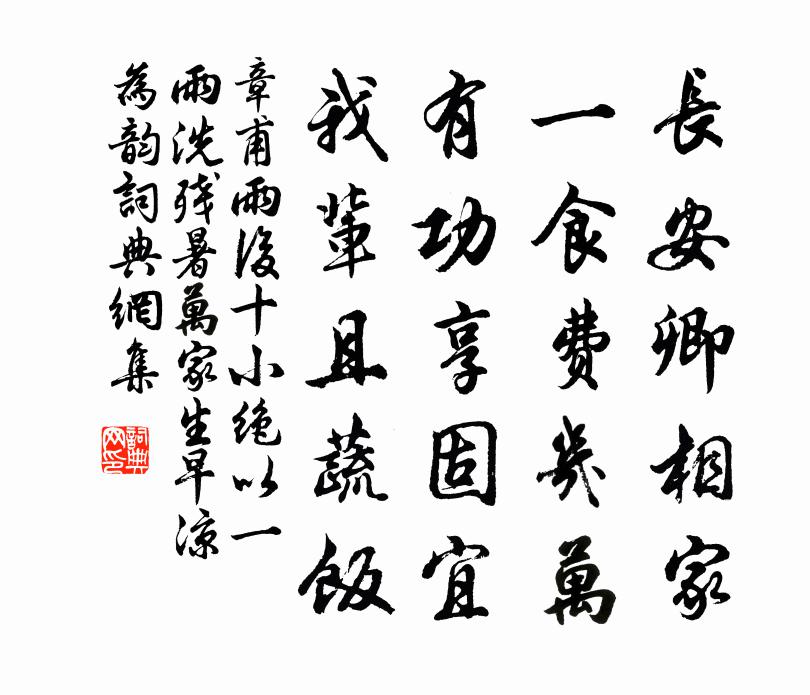 長安卿相家
一食費幾萬
有功享固宜
我輩且蔬飯
章甫雨後十小絶以一
雨洗残暑萬家生早涼
為韵詞典網集
詞典
网印